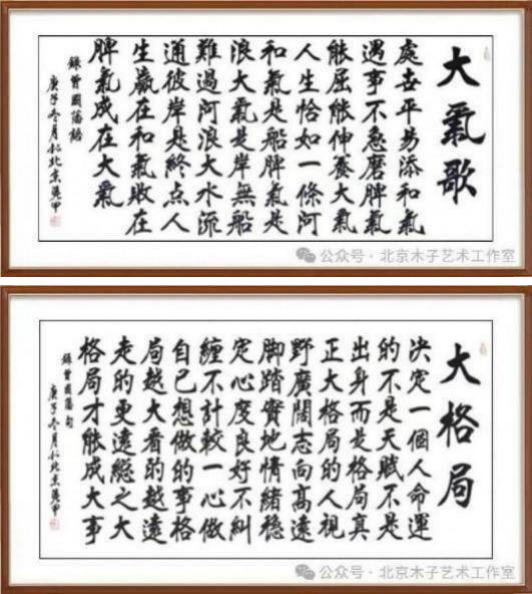 大氣歌
處世平易添和氣
遇事不急磨脾氣
能屈能伸養大氣
人生恰如一條河
和氣是船脾氣是
浪大氣是岸無船
難過河浪大水流
通彼岸是終点人
生贏在和氣敗在
脾氣成在大氣
錄曾國藩語
庚子冬月於北京
公众号·北京木子艺术工作室
大格局
決定一個人命運
的不是天賦不是
出身而是格局真
正大格局的人視
野廣闊志向高遠
脚踏實地情緒穩
定心度良好不糾
纏不計較一心做
自己想做的事格
局越大看的越遠
走的更遠總之大
格局才能成大事
錄曾國藩句
庚子冬月於北京
公众号·北京木子艺术工作室